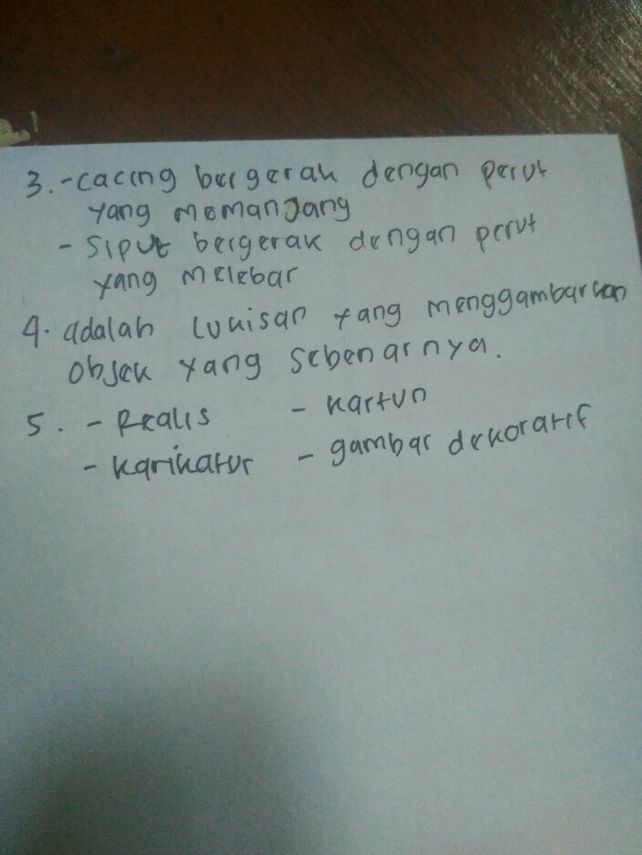 3. - cacing bergerak dengan perut
yang memanjang
- siput bergerak dengan perut
yang melebar
4. adalah lukisan yang menggambarkan
objek yang sebenarnya.
5. - Realis - kartun
- karikatur - gambar dekoratif